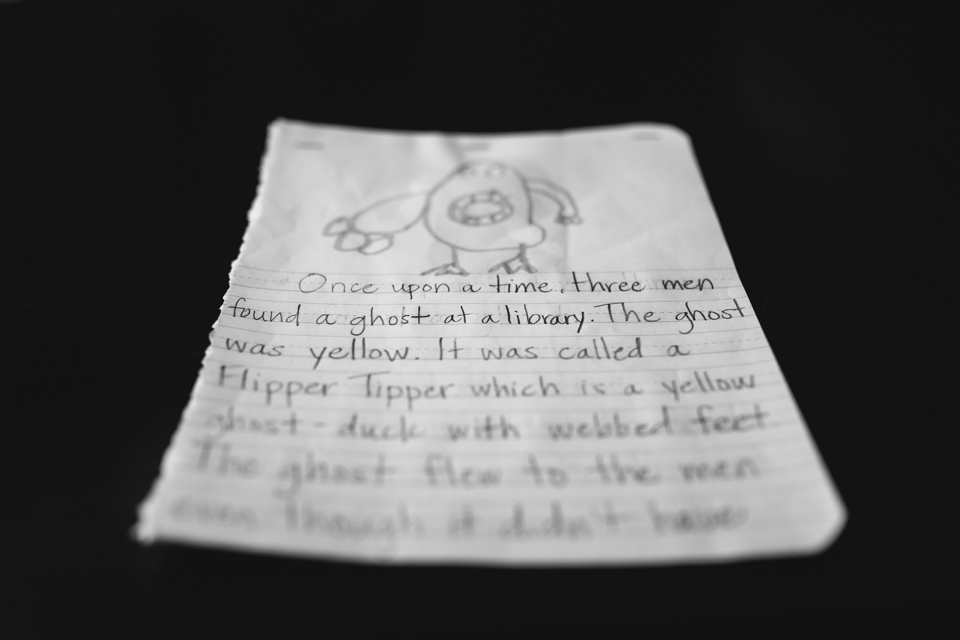 Once upon a time, three men
found a ghost at a library. The ghost
was yellow. It was called a
Flipper Tipper which is a yellow
ghost-duck with webbed feet.
The ghost flew to the men
even though it didn't have